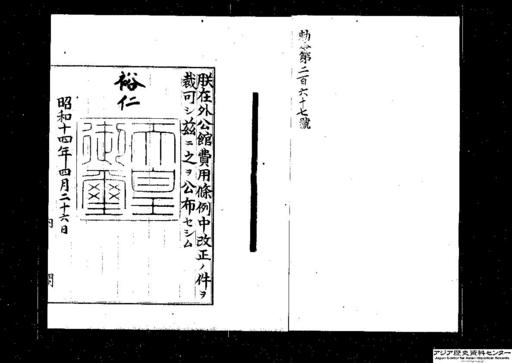 勅令第二百六十七號
朕在外公館費用條例中改正ノ件ヲ
裁可シ茲ニ之ヲ公布セシム
裕仁
天皇御璽
昭和十四年四月二十六日
内閣
アジア歴史資料センター
Japan Center for Asian Historical Records